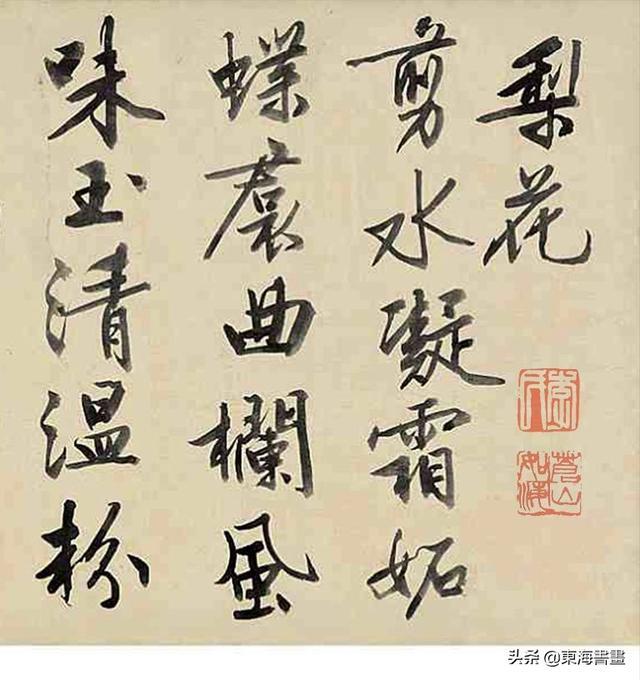 梨花
剪水凝霜妬
蝶裠曲欄風
味玉清温粉
蒼山如海
头条 @東海書畫